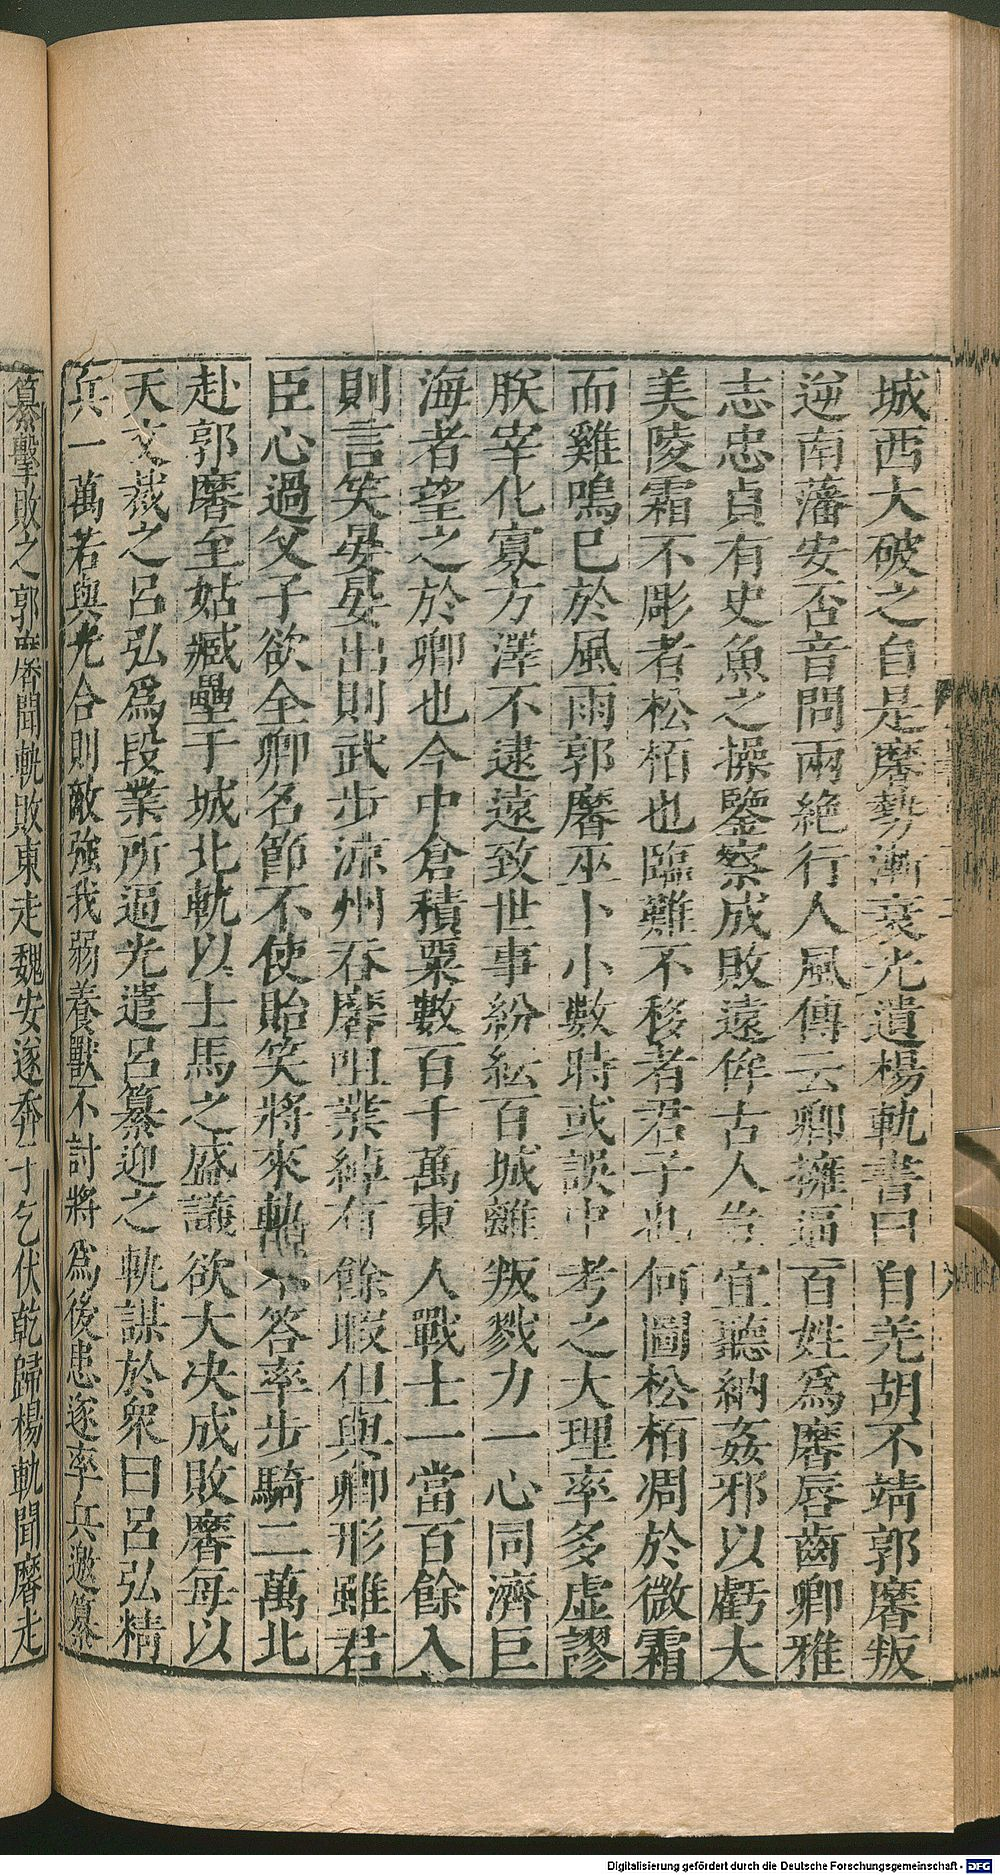 城西大破之自是黁勢漸衰光遺楊軌書曰自羌胡不靖郭黁叛
逆南藩安否音問兩絶行人風傳云卿擁逼百姓爲黁唇齒卿雅
志忠貞有史魚之操鑒察成敗遠侔古人豈宜聽納姦邪以虧大
美陵霜不彫者松栢也臨難不移者君子也何圖松栢凋於微霜
而雞鳴已於風雨郭黁巫卜小數時或誤中考之大理率多虛謬
朕宰化寡方澤不逮遠致世事紛紜百城離叛戮力一心同濟巨
海者望之於卿也今中倉積粟數百千萬東人戰士一當百餘入
則言笑晏晏出則武步涼州吞黁咀業綽有餘暇但與卿形雖君
臣心過父子欲全卿名節不使貽笑將來軌不答率步騎二萬北
赴郭黁至姑臧壘于城北軌以士馬之盛議欲大决成敗黁每以
天文裁之呂弘爲段業所逼光遣呂纂迎之軌謀於衆曰呂弘精
兵一萬若與光合則敵強我弱養獸不討將爲後患遂率兵邀纂
纂擊敗之郭黁聞軌敗東走魏安遂奔于乞伏乾歸楊軌聞黁走
Digitalisierung gefördert durch die Deutsche Forschungsgemeinschaft - DFG